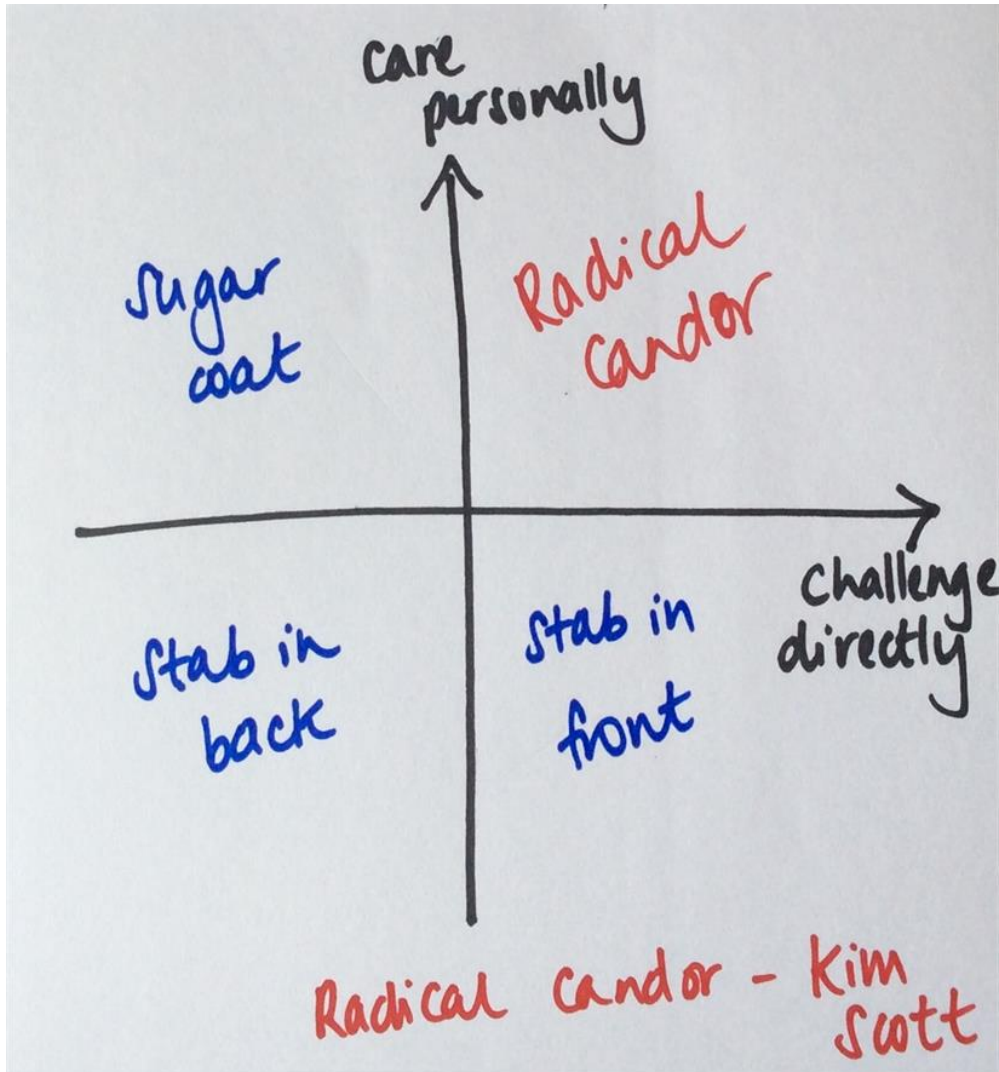 Care
personally
Sugar
coat
Radical
candor
Challenge
directly
Stab in
back
Stab in
front
Radical candor - Kim
Scott